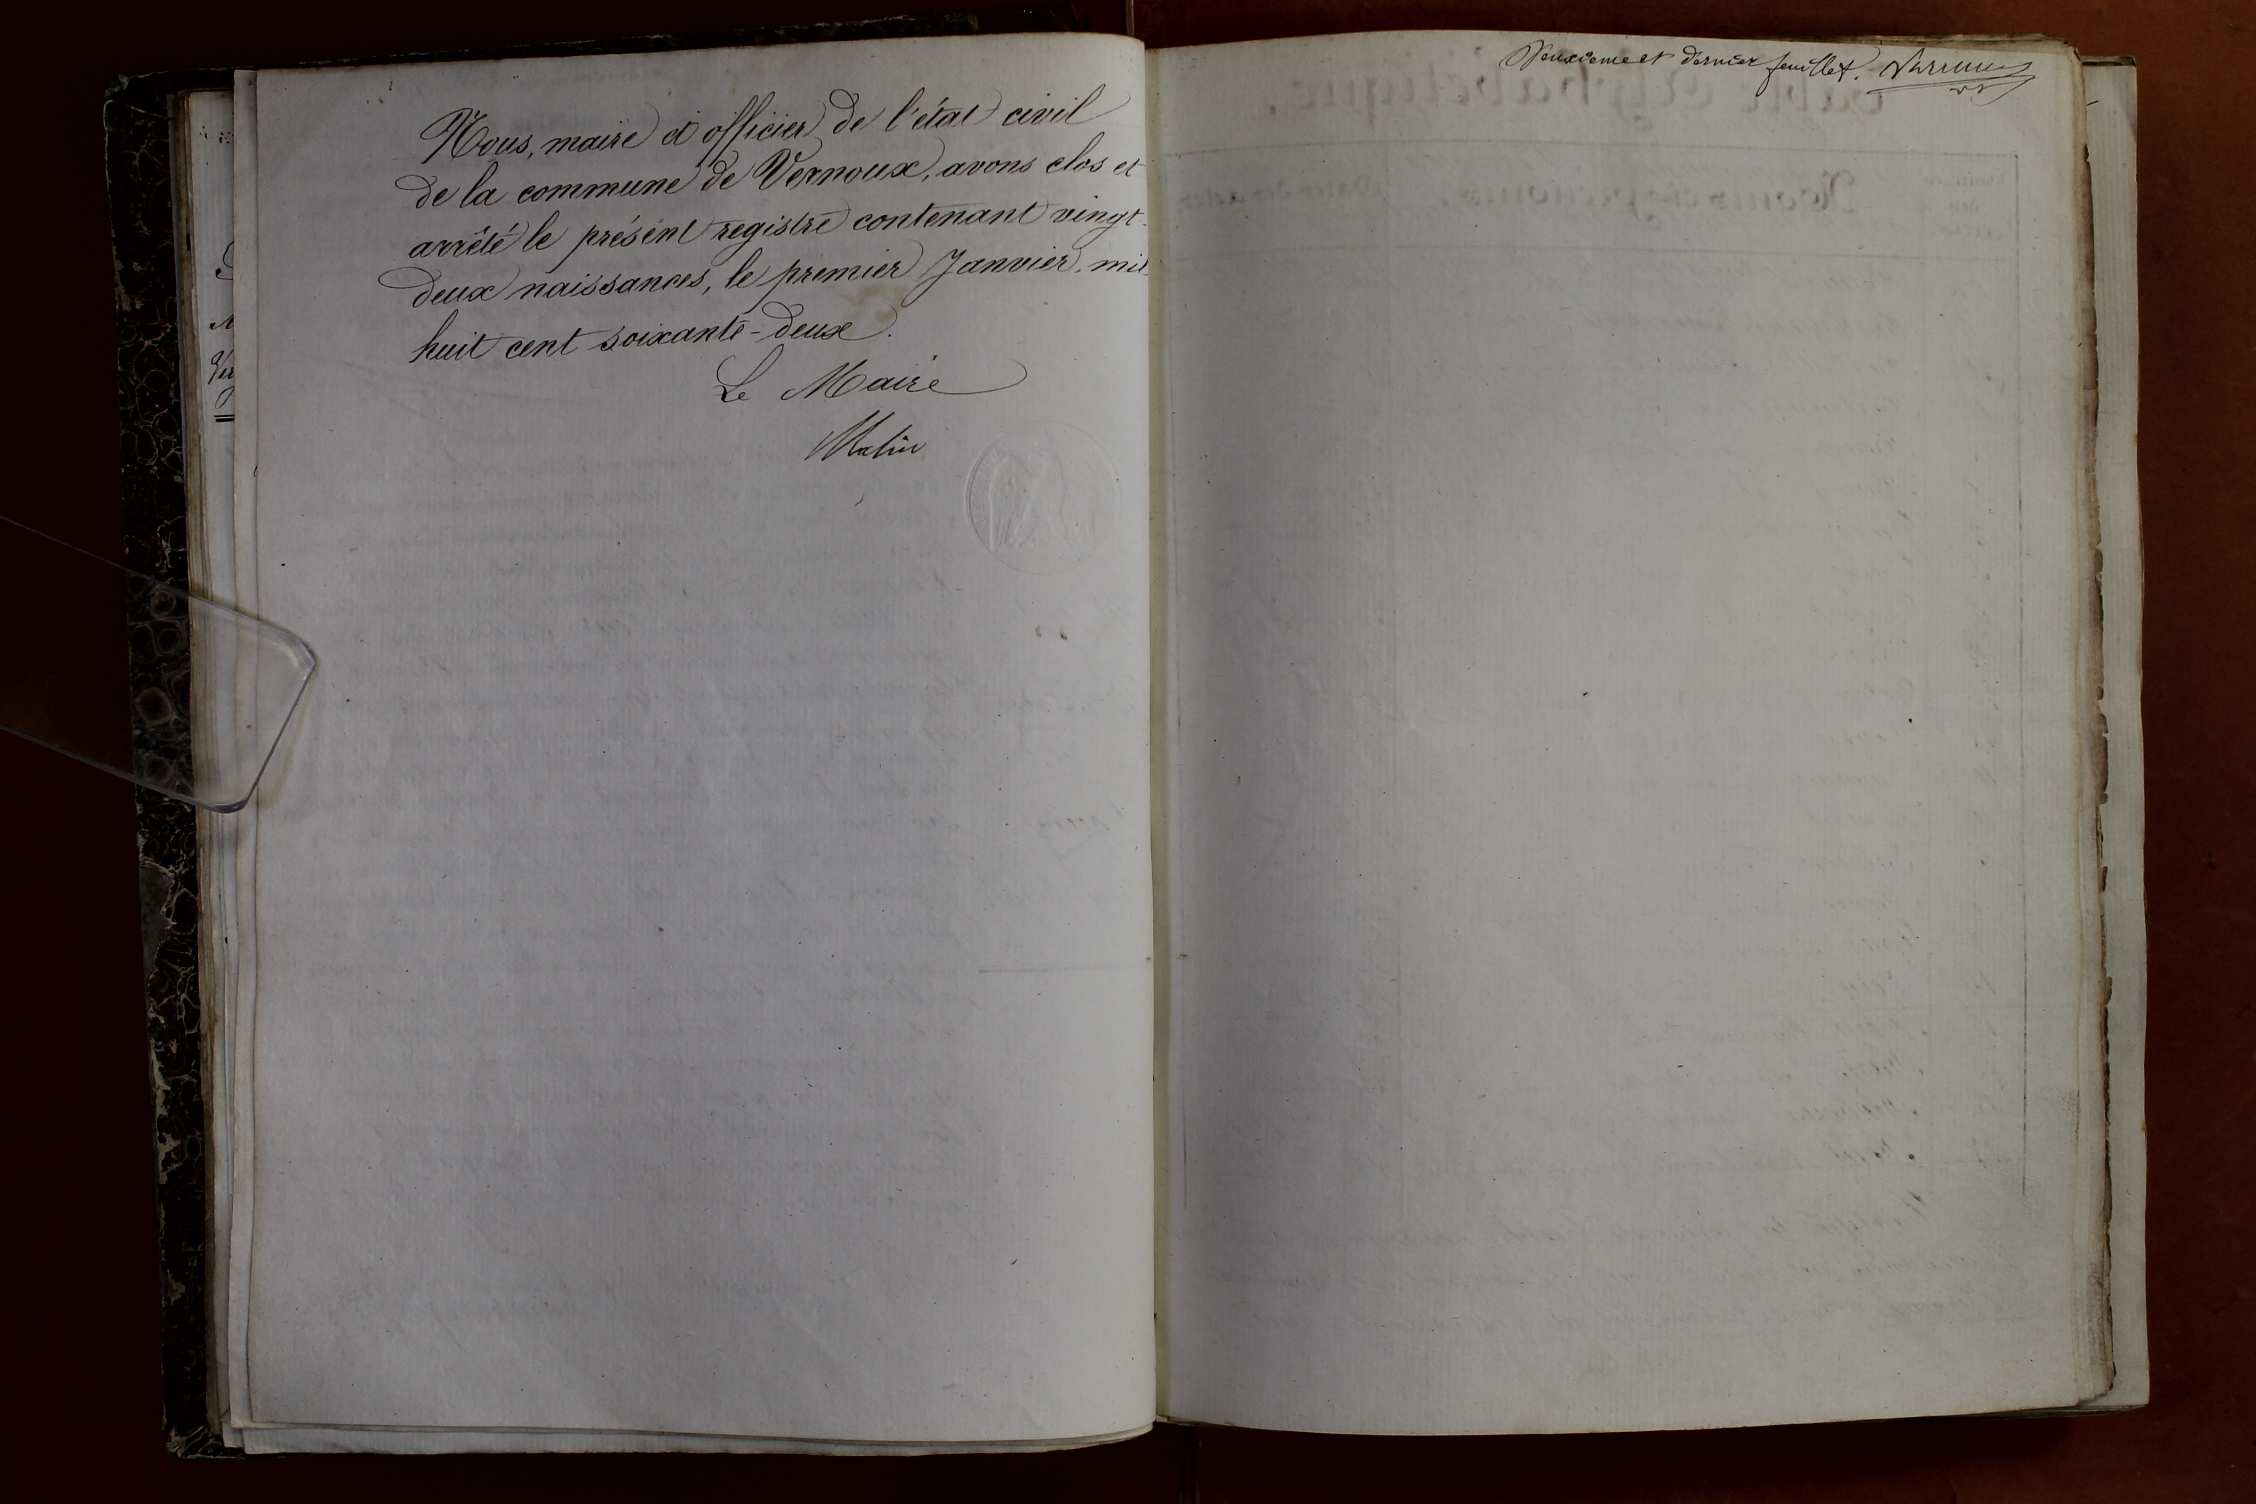 Nous, maire et officier de l'état civil
de la commune de Vernoux, avons clos et
arrêté le présent registre contenant vingt-
deux naissances, le premier Janvier, mil
huit cent soixante-deux.
Le Maire
Deuxième et dernier feuillet.